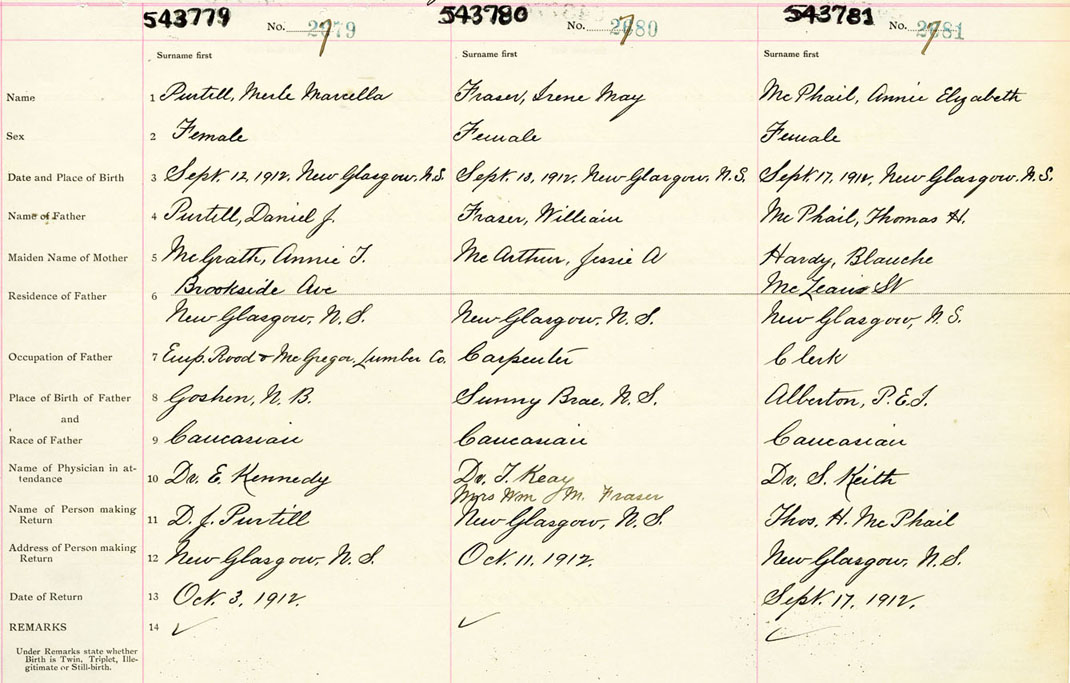 543779 543780 543781
No. 2679 No. 2680 No. 2681
Surname first Surname first Surname first
Name 1 Purtill, Merle Marcella Fraser, Irene May McPhail, Annie Elizabeth
Sex 2 Female Female Female
Date and Place of Birth 3 Sept. 12, 1912, New Glasgow, N.S. Sept. 13, 1912, New Glasgow, N.S. Sept. 17, 1912, New Glasgow, N.S.
Name of Father 4 Purtill, Daniel J. Fraser, William McPhail, Thomas H.
Maiden Name of Mother 5 McGrath, Annie T. McArthur, Jessie A Hardy, Blauche
Brookside Ave McLeans St
Residence of Father 6
New Glasgow, N.S. New Glasgow, N.S. New Glasgow, N.S.
Occupation of Father 7 Emp. Rood & McGregor, Lumber Co. Carpenter Clerk
Place of Birth of Father 8 Goshen, N.B. Sunny Brae, N.S. Alberton, P.E.I.
and
Race of Father 9 Caucasian Caucasian Caucasian
Name of Physician in at-
tendance 10 Dr. E. Kennedy Dr. T. Keay Dr. S. Keith
Mrs Wm M. Fraser
Name of Person making
Return 11 D. J. Purtill New Glasgow, N.S. Thos. H. McPhail
Address of Person making
Return 12 New Glasgow, N.S. Oct. 11, 1912. New Glasgow, N.S.
Date of Return 13 Oct. 3, 1912. Sept. 17, 1912.
REMARKS 14 ✓ ✓ ✓
Under Remarks state whether
Birth is Twin, Triplet, Ille-
gitimate or Still-birth.